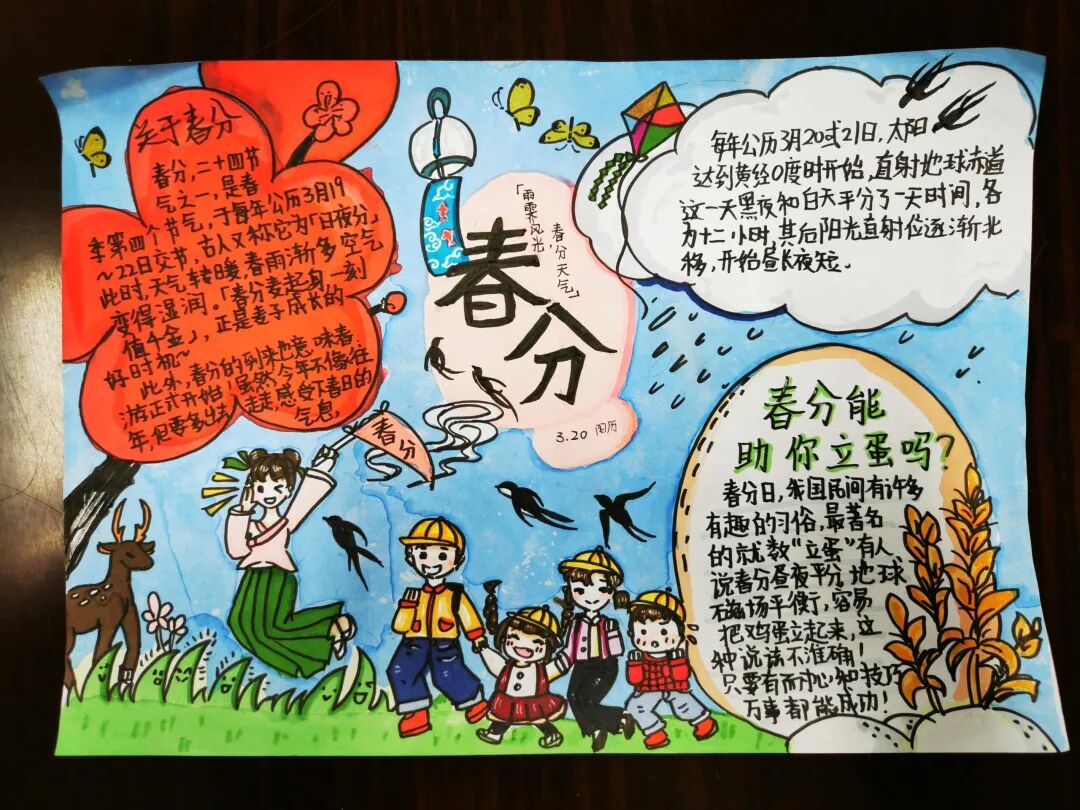 关于春分
春分，二十四节
气之一，是春
季第四个节气，于每年公历3月19
~22日交节，古人又称它为「日夜分」
此时，天气转暖，春雨渐多空气
变得湿润。「春分麦起身一刻
值千金」，正是麦子成长的
好时机~
此外，春分的到来也意味春
游正式开始，虽然今年不像往
年，但要多出去走走，感受下春日的
气息
「雨霁风光，
春分天气」
春分
3.20 阳历
春分
每年公历3月20或21日，太阳
达到黄经0度时开始，直射地球赤道
这一天黑夜和白天平分了一天时间，各
为十二小时，其后阳光直射位逐渐北
移，开始昼长夜短。
春分能
助你立蛋吗？
春分日，我国民间有许多
有趣的习俗，最著名
的就数“立蛋”有人
说春分昼夜平分，地球
磁场平衡，容易
把鸡蛋立起来，这
种说法不准确！
只要有耐心和技巧
万事都能成功！